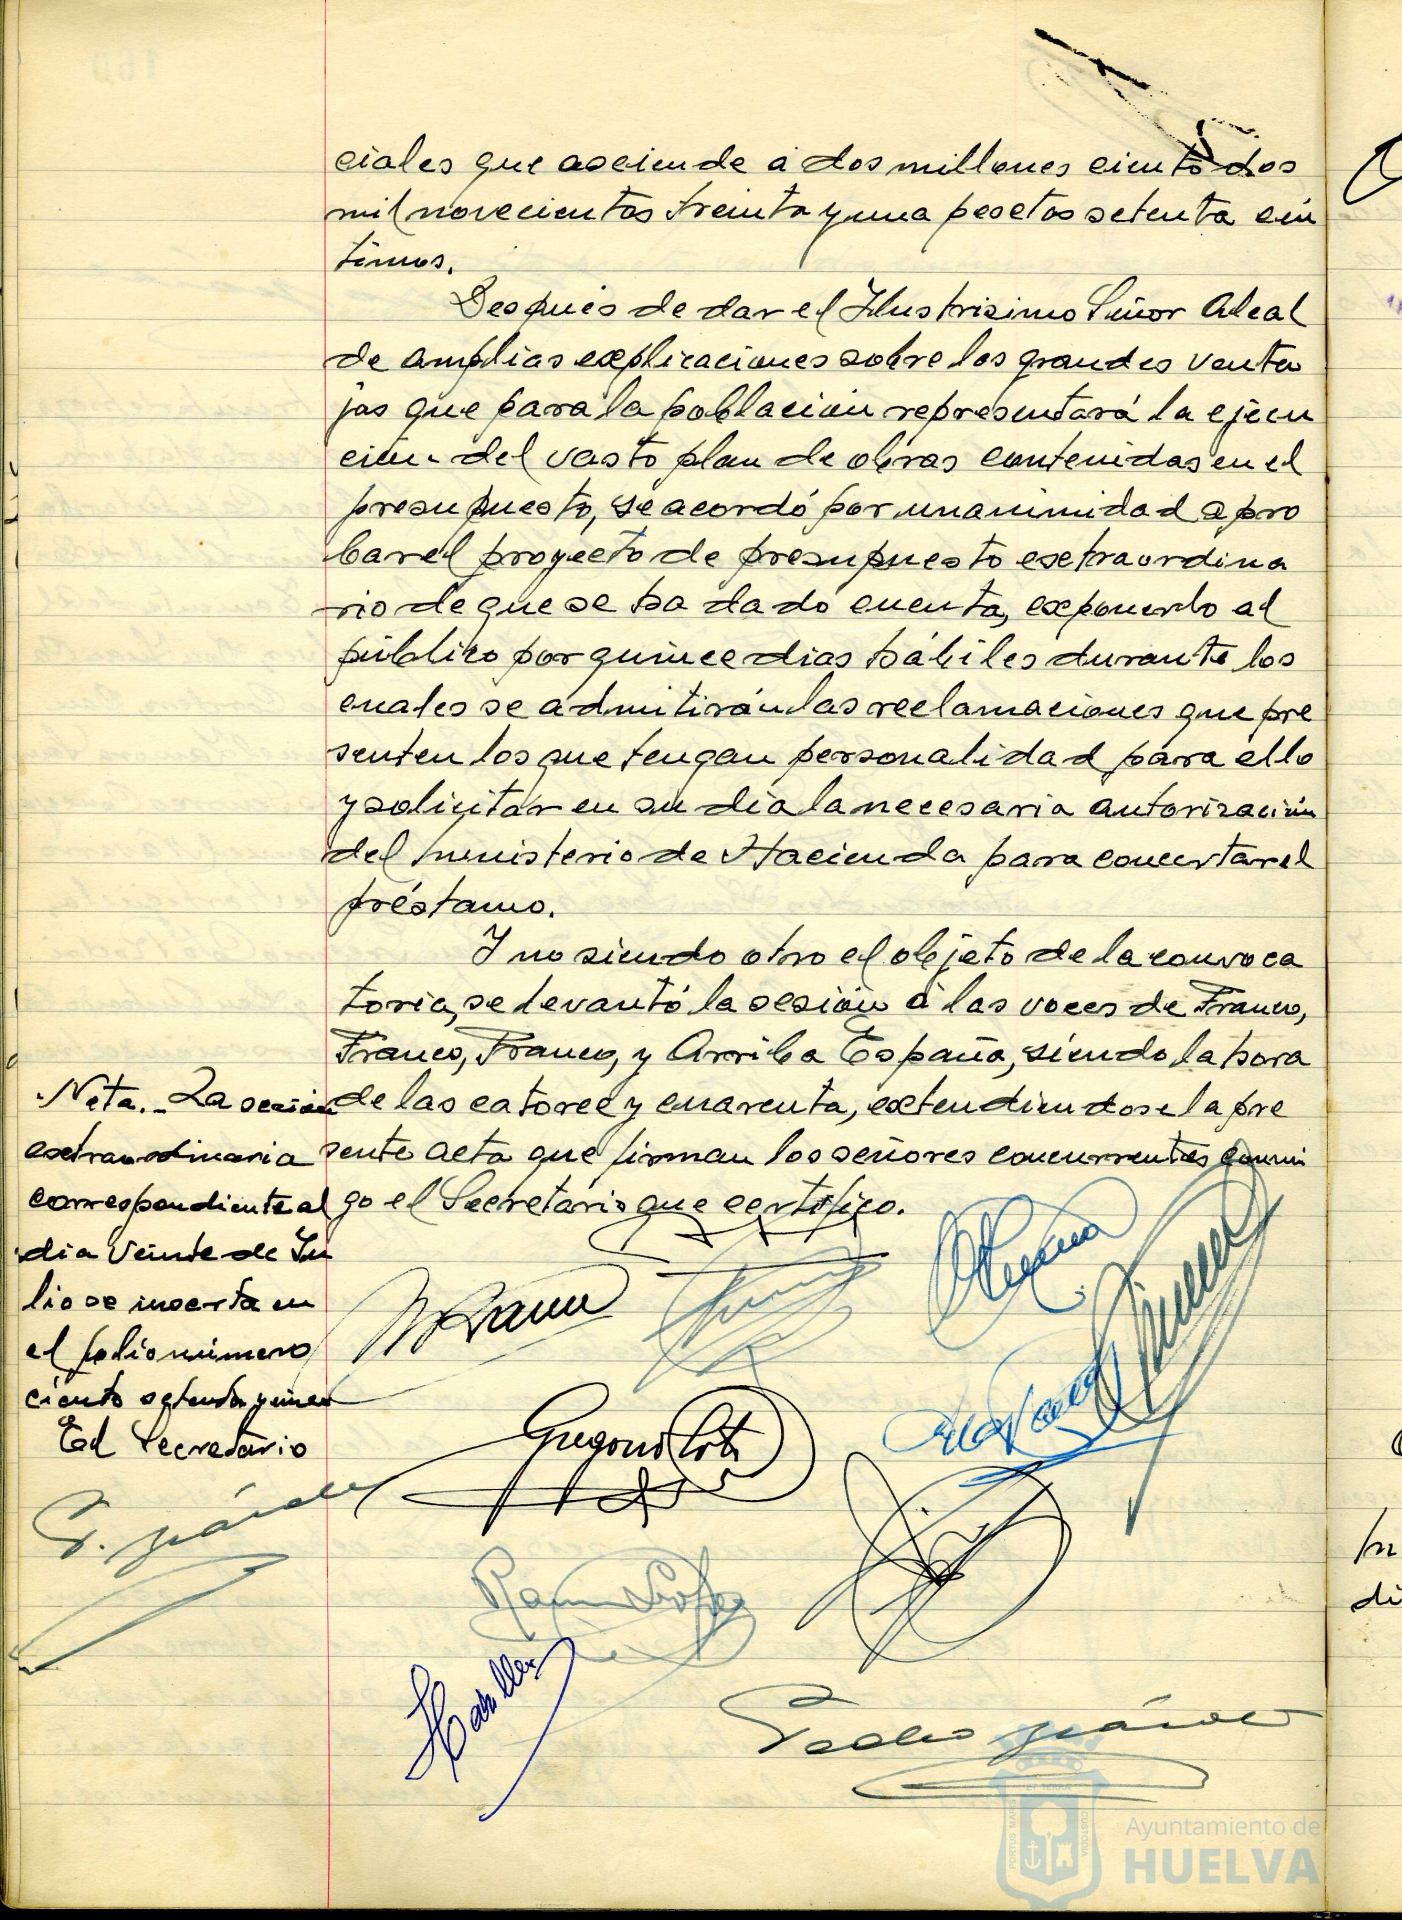 ciales que asciende a dos millones ciento dos
mil novecientas treinta y una pesetas setenta cén
timos.
Después de dar el Ilustrisimo Señor Alcal
de amplias explicaciones sobre las grandes venta
jas que para la población representará la ejecu
ción del vasto plan de obras contenidas en el
presupuesto, se acordó por unanimidad apro
bar el proyecto de presupuesto extraordina
rio de que se ha dado cuenta, exponerlo al
público por quince dias hábiles durante los
cuales se admitirán las reclamaciones que pre
senten los que tengan personalidad para ello
y solicitar en su dia la necesaria autorización
del Ministerio de Hacienda para concertar el
préstamo.
Y no siendo otro el objeto de la convoca
toria, se levantó la sesión a las voces de Franco,
Franco, Franco, y Arriba España, siendo la hora
de las catorce y cuarenta, extendiendose la pre
sente acta que firman los señores concurrentes conmi
go el Secretario que certifico.
Nota.- La sesión
extraordinaria
correspondiente al
dia veinte de Ju
lio se inserta en
el folio número
ciento setenta y
El Secretario
Ramon López
Pedro
Ayuntamiento de
HUELVA